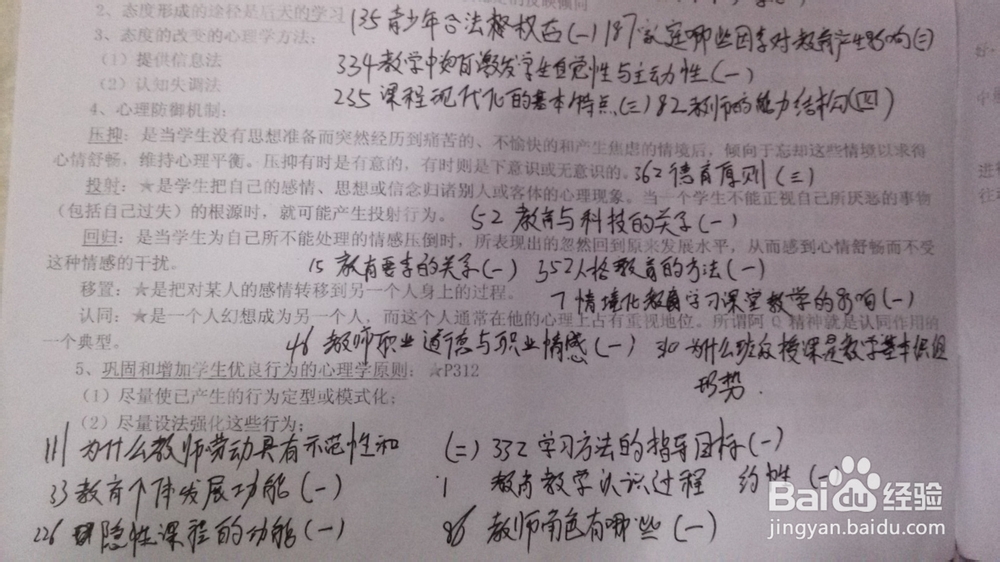 2、态度形成的途径是后天的学习
135青少年合法权 (一) 187家庭哪些因素对教育产生影响(三)
3、态度的改变的心理学方法：
(1) 提供信息法
334教学中如何激发学生自觉性与主动性(一)
(2) 认知失调法
235 课程现代化的基本特点(三) 82教师的能力结构(四)
4、心理防御机制：
压抑：是当学生没有思想准备而突然经历到痛苦的、不愉快的和产生焦虑的情境后，倾向于忘却这些情境以求得
心情舒畅，维持心理平衡。压抑有时是有意的，有时则是下意识或无意识的。
362德育原则(三)
投射：★是学生把自己的感情、思想或信念归诸别人或客体的心理现象。当一个学生不能正视自己所厌恶的事物
(包括自己过失) 的根源时，就可能产生投射行为。
52 教育与科技的关系(一)
回归：是当学生为自己所不能处理的情感压倒时，所表现出的忽然回到原来发展水平，从而感到心情舒畅而不受
这种情感的干扰。
15 教育要素的关系(一) 352人格教育的方法(一)
移置：★是把对某人的感情转移到另一个人身上的过程。
7 情境化教育学习课堂教学的影响(一)
认同：★是一个人幻想成为另一个人，而这个人通常在他的心理上占有重视地位。所谓阿Q精神就是认同作用的
一个典型。
46 教师职业道德与职业情感(一) 310为什么班级授课是教学基本组织
形势.
5、巩固和增加学生优良行为的心理学原则：★P312
(1) 尽量使已产生的行为定型或模式化；
(2) 尽量设法强化这些行为；
111 为什么教师劳动具有示范性和 (二) 332 学习方法的指导目标(一)
33教育个体发展功能(一) 1 教育教学认识过程 约性(一)
226 隐性课程的功能(一) 86 教师角色有哪些(一)
Baidu经验
jingyan.baidu.com